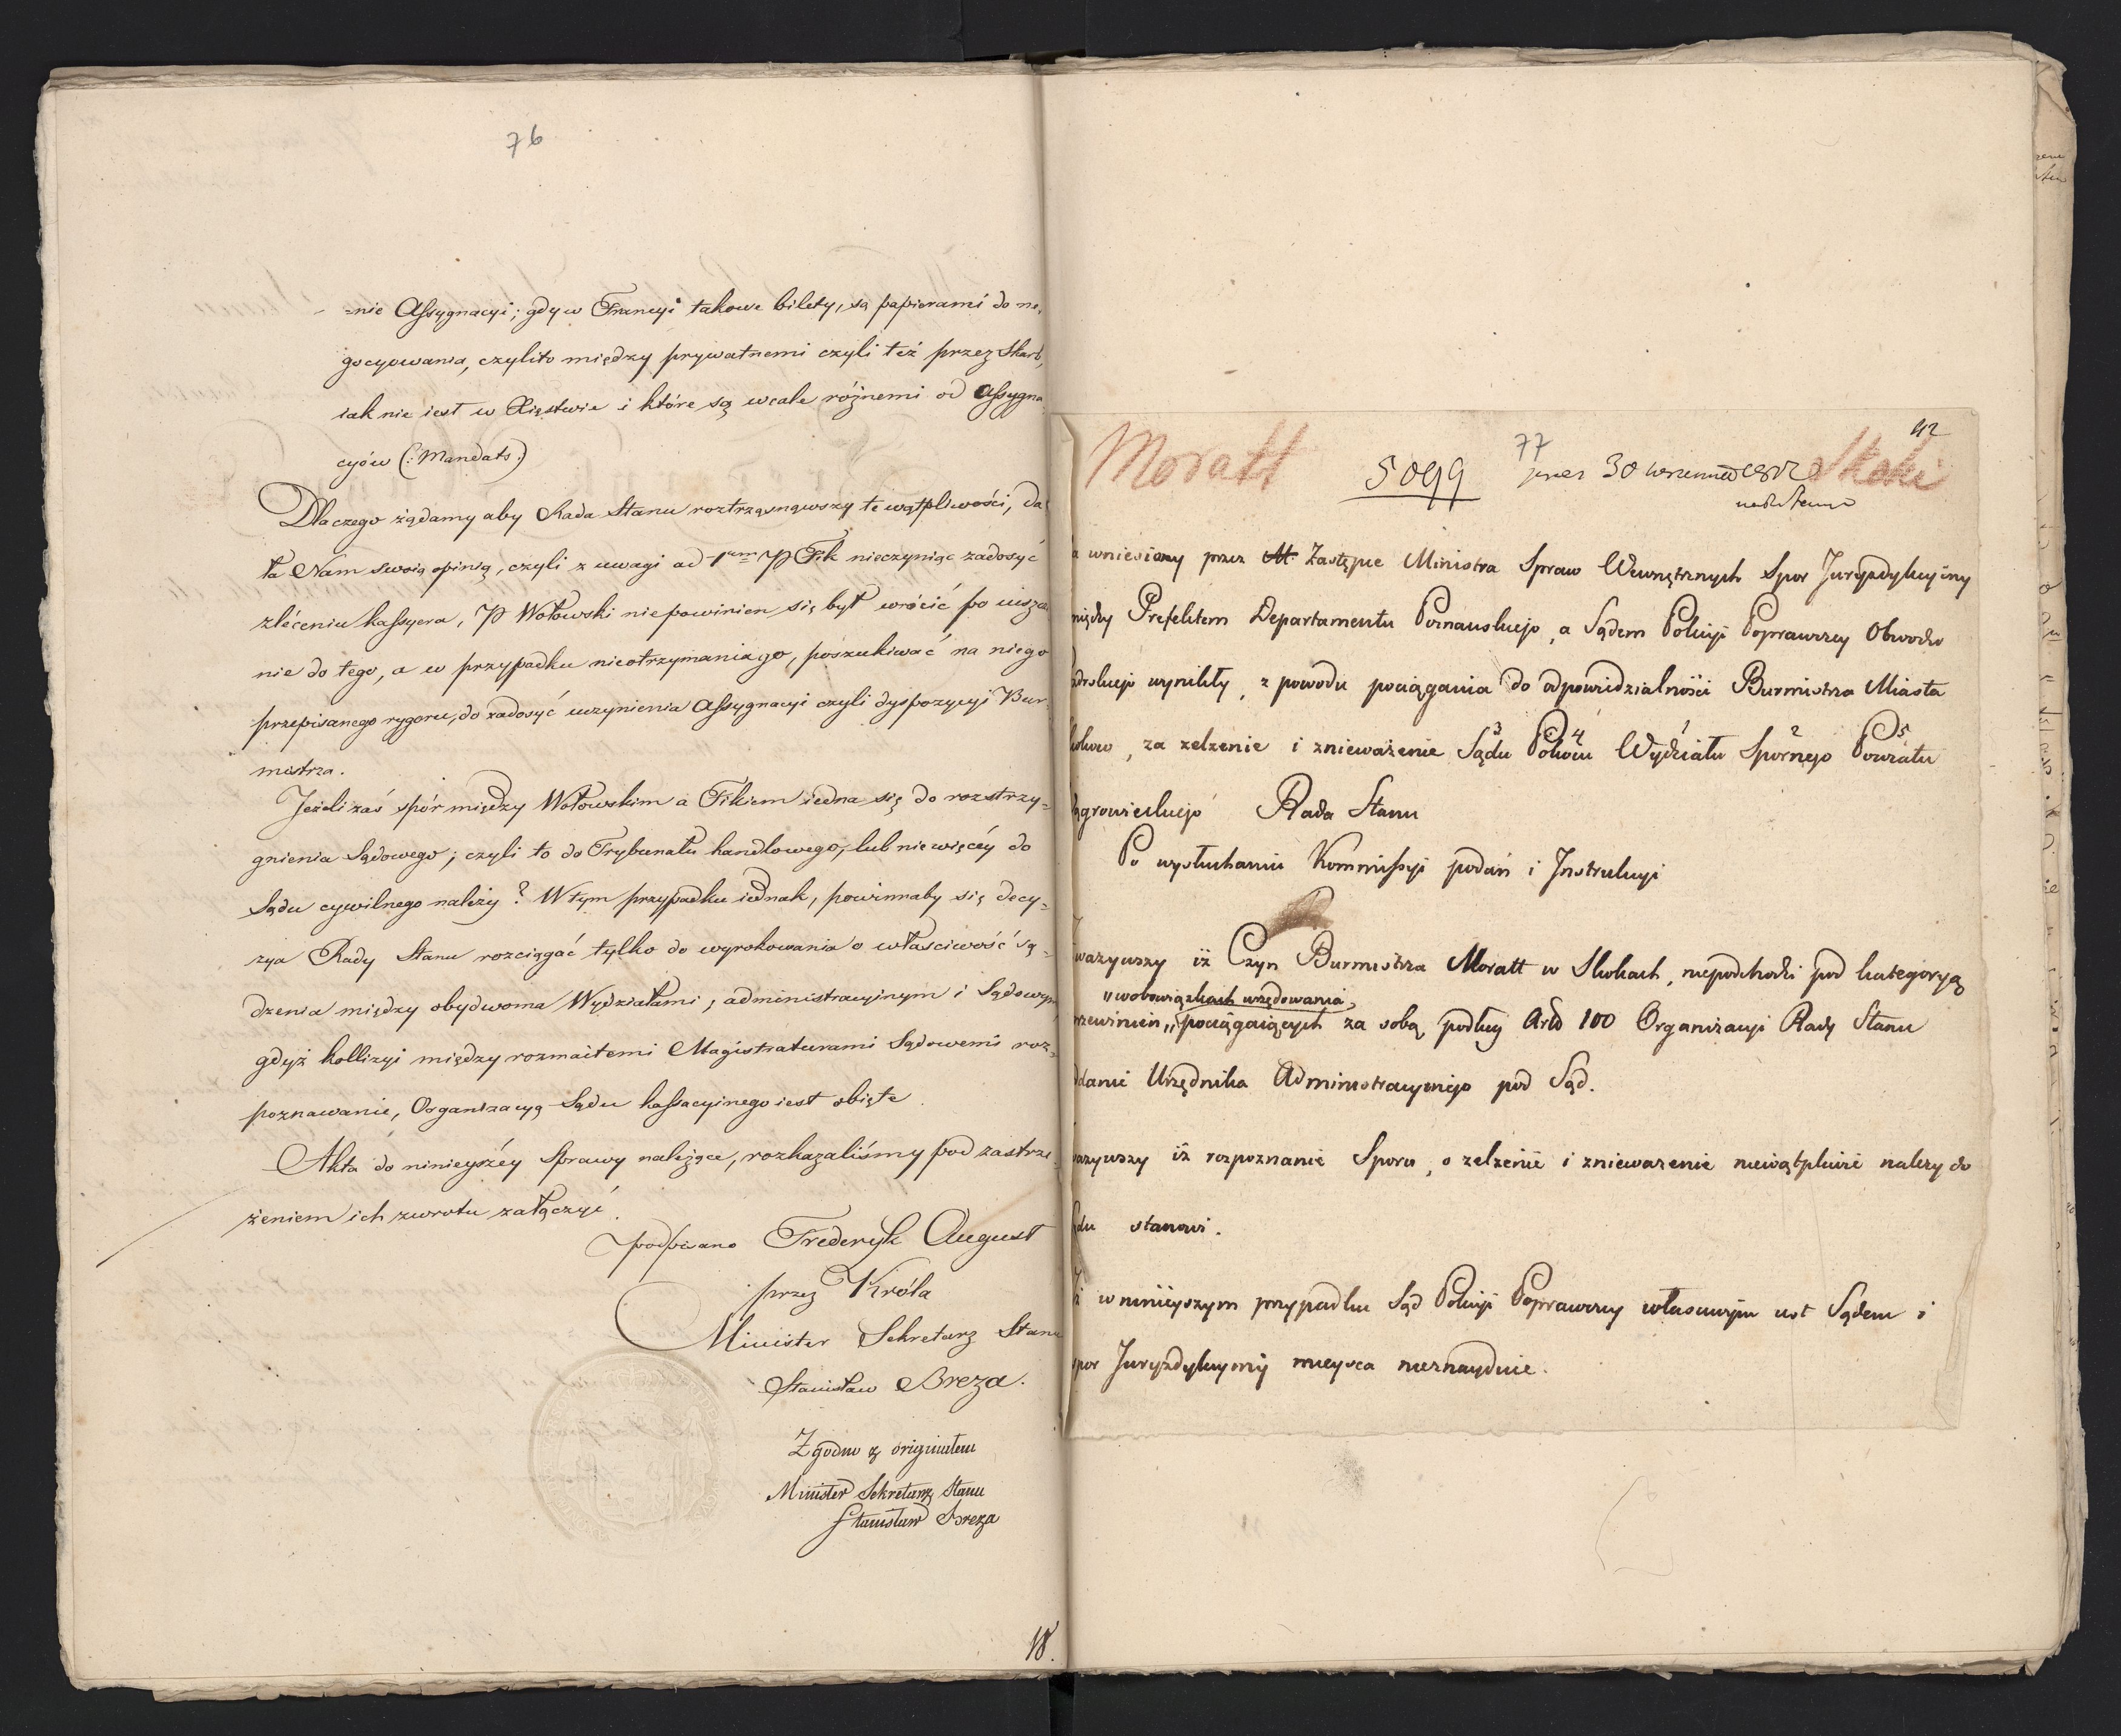 76
=nie Assygnacyi; gdy w Francyi takowe bilety, są papierami do ne=
gocyowania, czylito między prywatnemi czyli też przez Skarb,
iak nie iest w Xięstwie i które są wcale różnemi od Assygna
cyów (: Mandats :)
Dlaczego żądamy aby Rada Stanu roztrząsnąwszy te wątpliwości, da
ła Nam swoią opinią, czyli z uwagi ad 1um P Fik nieczyniąc zadosyć
zléceniu kassyera, P Wołowski niepowinien się był wrócić po uisza
nie do tego, a w przypadku nieotrzymania go, poszukiwać na niego
przepisanego rygoru, do zadosyć uczynienia Assygnacyi czyli dyspozycyi Bur=
mistrza.
Jeżeli zaś spór między Wołowskim a Fikiem iedna się do rozstrzy=
gnienia Sądowego; czyli to do Trybunału handlowego, lub nie więcéy do
Sądu cywilnego należy? W tym przypadku iednak, powinnaby się decy=
zya Rady Stanu rozciągać tylko do wyrokowania o właściwość są=
dzenia między obydwoma Wydziałami, administracyinym i Sądowym,
gdyż kollizyi między rozmaitemi Magistraturami Sądowemi roz=
poznawanie, Organizacyą Sądu kassacyinego iest obięte.
Akta do ninieyszéy Sprawy należące, rozkazaliśmy pod zastrze=
żeniem ich zwrotu załączyć.
podpisano Frederyk August
przez Króla
Minister Sekretarz Stanu
Stanisław Breza.
Zgodno z originałem
Minister Sekretarz Stanu
Stanisław Breza
18.
42
77
Moratt 5099 30 Skoki
wniesiony przez M. Zastępce Ministra Spraw Wewnętrznych Spor Juryzdykcyiny
między Prefektem Departamentu Poznanskiejo, a Sądem Policyi Poprawczey Obwodu
wynikły, z powodu pociągania do odpowiedzialności Burmistrza Miasta
za zelzenie i znieważenie Sądu 3 Pokoiu 4 Wydziału 1 Spornego 2 Powiatu 5
ągrowieckiejo Rada Stanu
Po wysłuchaniu Kommissyi podań i Instrukcyi
waży wszy iż Czyn Burmistrza Moratt w Skokach, niepodchodzi pod kategoryą
„w obowiązkach urzędowania„
rzewinień „pociągaiących za sobą podług Artd 100 Organizacyi Rady Stanu
ddanie Urzędnika Administracyinejo pod Sąd.
ażywszy iż rozpoznanie Sporu, o zelzenie i znieważenie niewątpliwie należy do
ądu stanowi.
ż w ninieyszym przypadku Sąd Policyi Poprawczey własciwym iest Sądem i
spor Juryzdykcyiny mieysca nieznayduie.